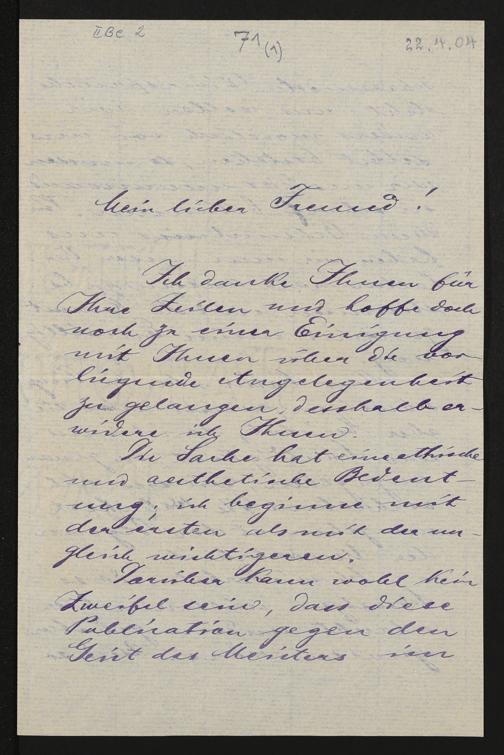 II Bc 2
71 (1)
22.4.04
Mein lieber Freund!
Ich danke Ihnen für
Ihre Zeilen und hoffe doch
noch zu einer Einigung
mit Ihnen über die vor-
liegende Angelegenheit
zu gelangen, desshalb er-
widere ich Ihnen.
Die Sache hat eine ethische
und aesthetische Bedeut-
ung; ich beginne mit
der ersten als mit der un-
gleich wichtigeren.
Darüber kann wohl kein
Zweifel sein, dass diese
Publication gegen den
Geist des Meisters im